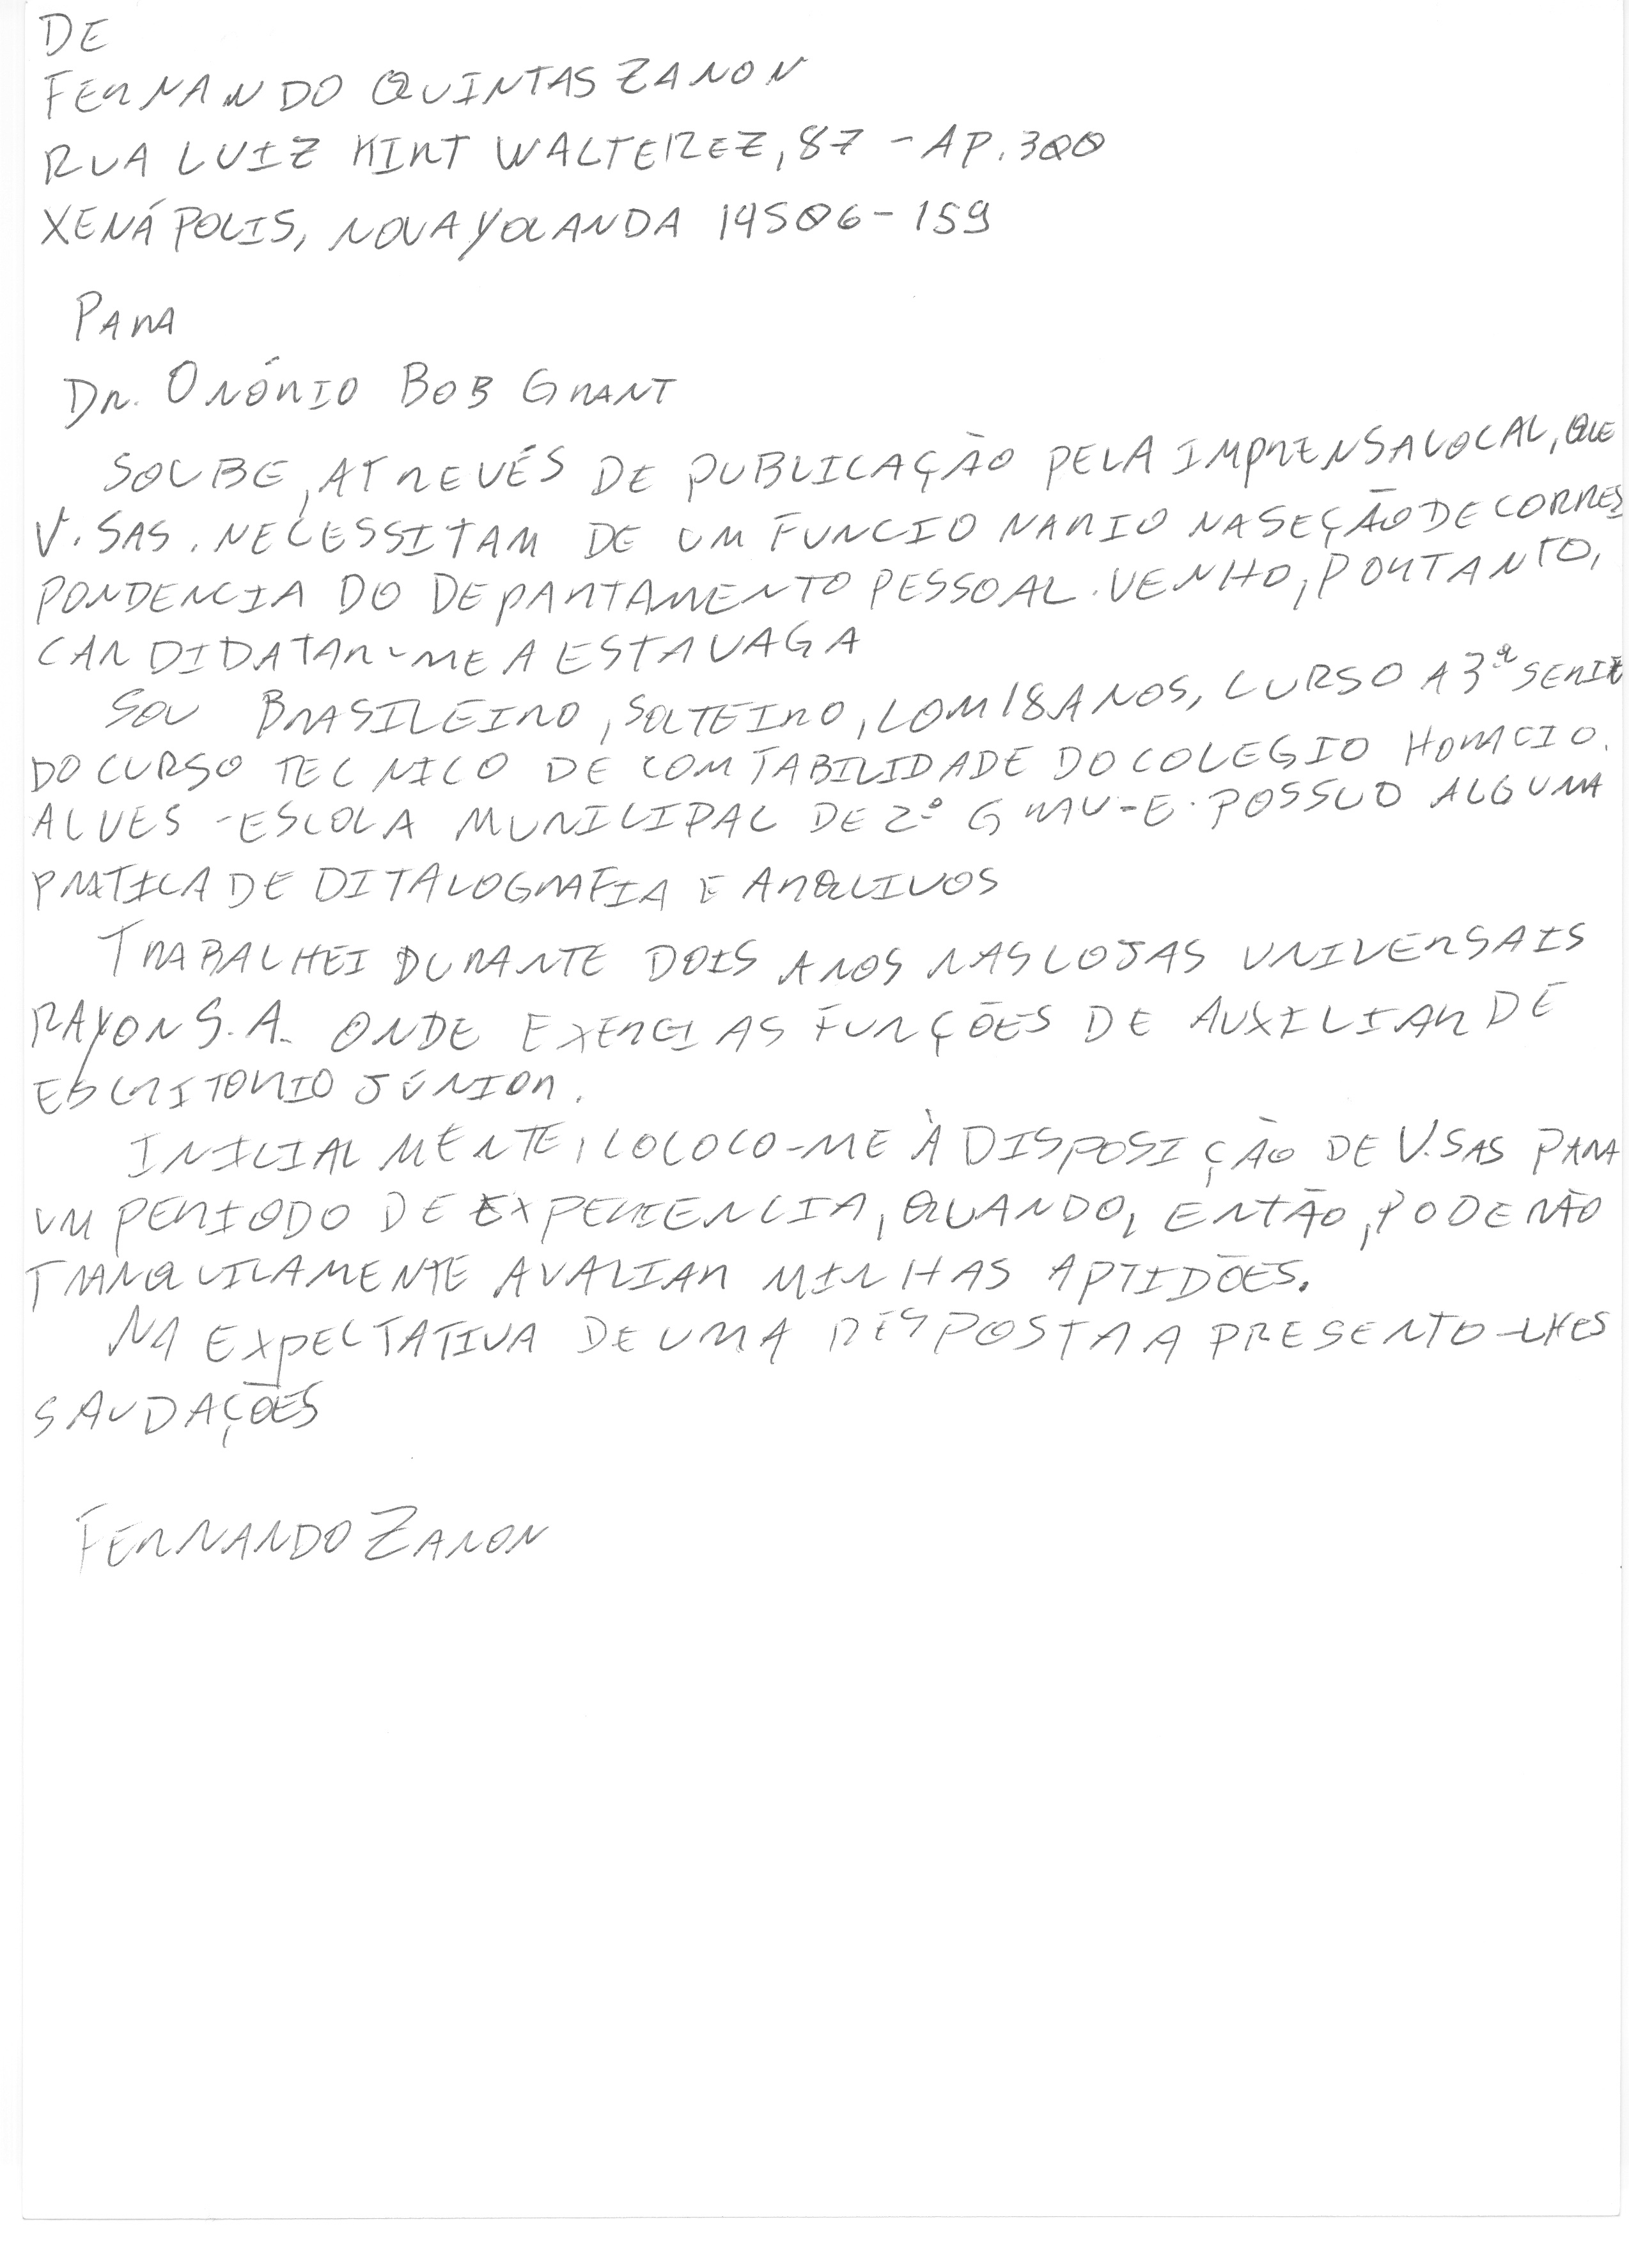 DE
FERNANDO QUINTAS ZANON
RUA LUIZ KINT WALTEREZ, 87 - AP. 300
XENÁPOLIS, NOVA YOLANDA 14506-159
PARA
DR. ONÓRIO BOB GRANT
SOUBE, ATREVÉS DE PUBLICAÇÃO PELA IMPRENSA LOCAL, QUE
V. SAS. NECESSITAM DE UM FUNCIONARIO NA SEÇÃO DE CORRES
PONDENCIA DO DEPARTAMENTO PESSOAL. VENHO, PORTANTO,
CANDIDATAR-ME A ESTA VAGA
SOU BRASILEIRO, SOLTEIRO, COM 18 ANOS, CURSO A 3ª SERIE
DO CURSO TECNICO DE COMTABILIDADE DO COLEGIO HORACIO
ALVES - ESCOLA MUNICIPAL DE 2º GRAU - E. POSSUO ALGUMA
PRATICA DE DITALOGRAFIA E ARQUIVOS
TRABALHEI DURANTE DOIS ANOS NAS LOJAS UNIVERSAIS
RAYON S.A. ONDE EXERCI AS FUNÇÕES DE AUXILIAR DE
ESCRITORIO JÚNIOR.
INICIALMENTE, COLOCO-ME À DISPOSIÇÃO DE V.SAS PARA
UM PERIODO DE EXPERIENCIA, QUANDO, ENTÃO, PODERÃO
TRANQUILAMENTE AVALIAR MINHAS APTIDÕES.
NA EXPECTATIVA DE UMA RESPOSTA APRESENTO-LHES
SAUDAÇÕES
FERNANDO ZANON